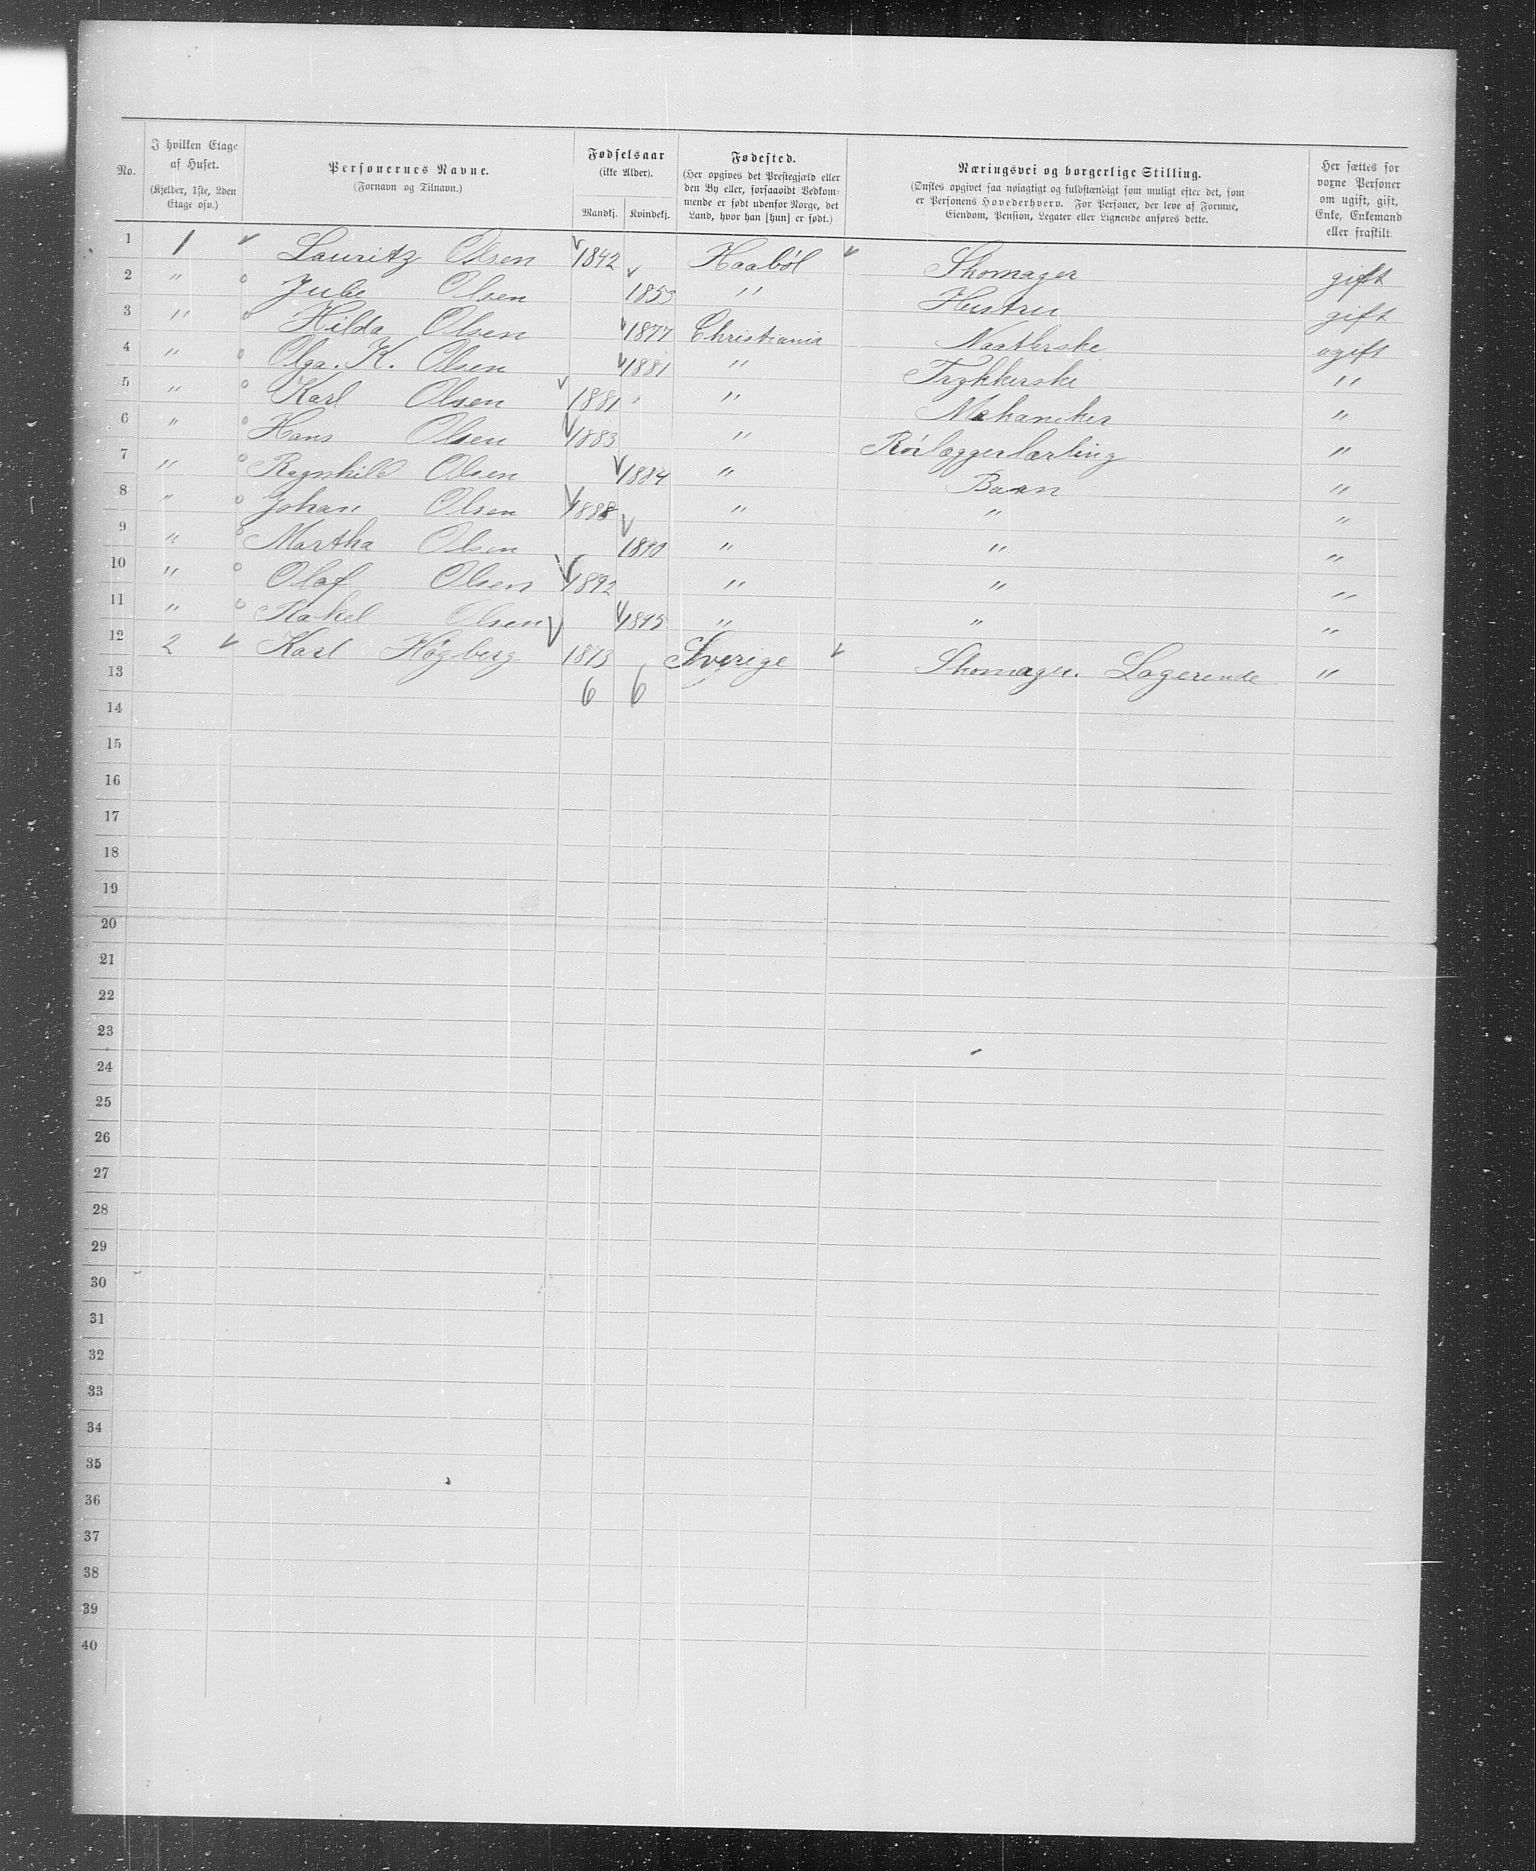 No.
I hvilken Etage af Huset. (Kjelder, 1ste, 2den Etage osv.)
Personernes Navne. (Fornavn og Tilnavn.)
Fødselsaar (ikke Alder). Mandkj. Kvindekj.
Fødested. (Her opgives det Prestegjæld eller den By eller, forsaavidt Vedkommende er født udenfor Norge, det Land, hvor han [hun] er født.)
Næringsvei og borgerlige Stilling. (Ønskes opgivet saa nøiagtigt og fuldstændigt som muligt efter det, som er Personens Hovederhverv. For Personer, der leve af Formue, Eiendom, Pension, Legater eller Lignende anføres dette.
Her sættes for voxne Personer om ugift, gift, Enke, Enkemand eller fraskilt.
1 1 Lauritz Olsen 1842 Haaböl Skomager gift
2 " Julie Olsen 1853 " Hustru gift
3 " Hilda Olsen 1877 Christiania Naatlerske ugift
4 " Olga. K. Olsen 1881 " Trykkerske "
5 " Karl Olsen 1881 " Mekaniker "
6 " Hans Olsen 1883 " Rörlæggerlærling "
7 " Ragnhild Olsen 1884 " Barn "
8 " Johan Olsen 1888 " " "
9 " Martha Olsen 1890 " " "
10 " Olaf Olsen 1892 " " "
11 " Rakel Olsen 1895 " " "
12 2 Karl Högberg 1873 Sverige Skomager. Logerende "
13 6 6
14
15
16
17
18
19
20
21
22
23
24
25
26
27
28
29
30
31
32
33
34
35
36
37
38
39
40